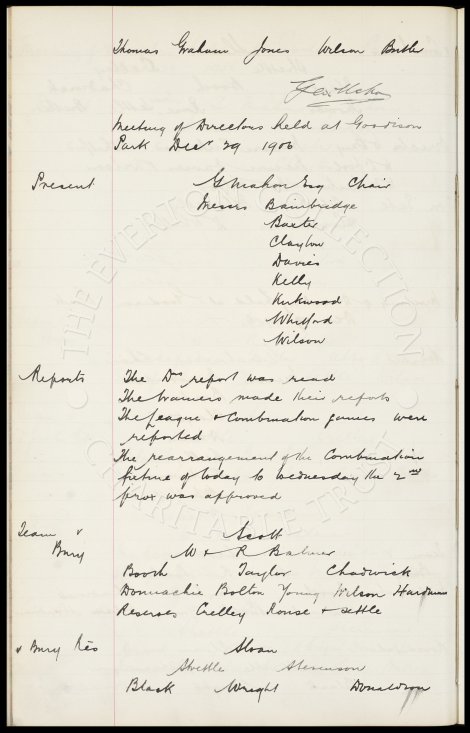 Thomas Graham Jones Wilson Butler
Geo Mahon
Meeting of Directors held at Goodison
Park Decr 29 1906
Present G Mahon Esq Chair
Messrs Bainbridge
Baxter
Clayton
Davies
Kelly
Kirkwood
Whitford
Wilson
Reports The Drs report was read
The trainers made their reports
The League & Combination games were
reported
The rearrangement of the Combination
fixture of today to Wednesday the 2nd
prox was approved
Team v Scott
Bury W & R Balmer
Booth Taylor Chadwick
Donnachie Bolton Young Wilson Hardman
Reserves Crelley Rouse & Settle
v Bury Res Sloan
Strettle Stevenson
Black Wright Donaldson
THE EVERTON COLLECTION
CHARITABLE TRUST